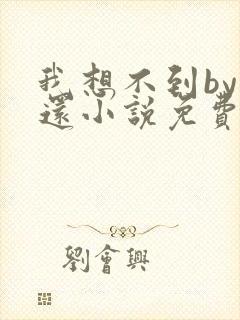 我想不到by
還小說免費
劉會興